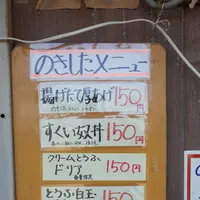 のきしたメニュー
揚げたて厚あげ 150円
すくい奴丼 150円
クリームとうふ
ドリア 150円
数量限定
とうふ白玉
150